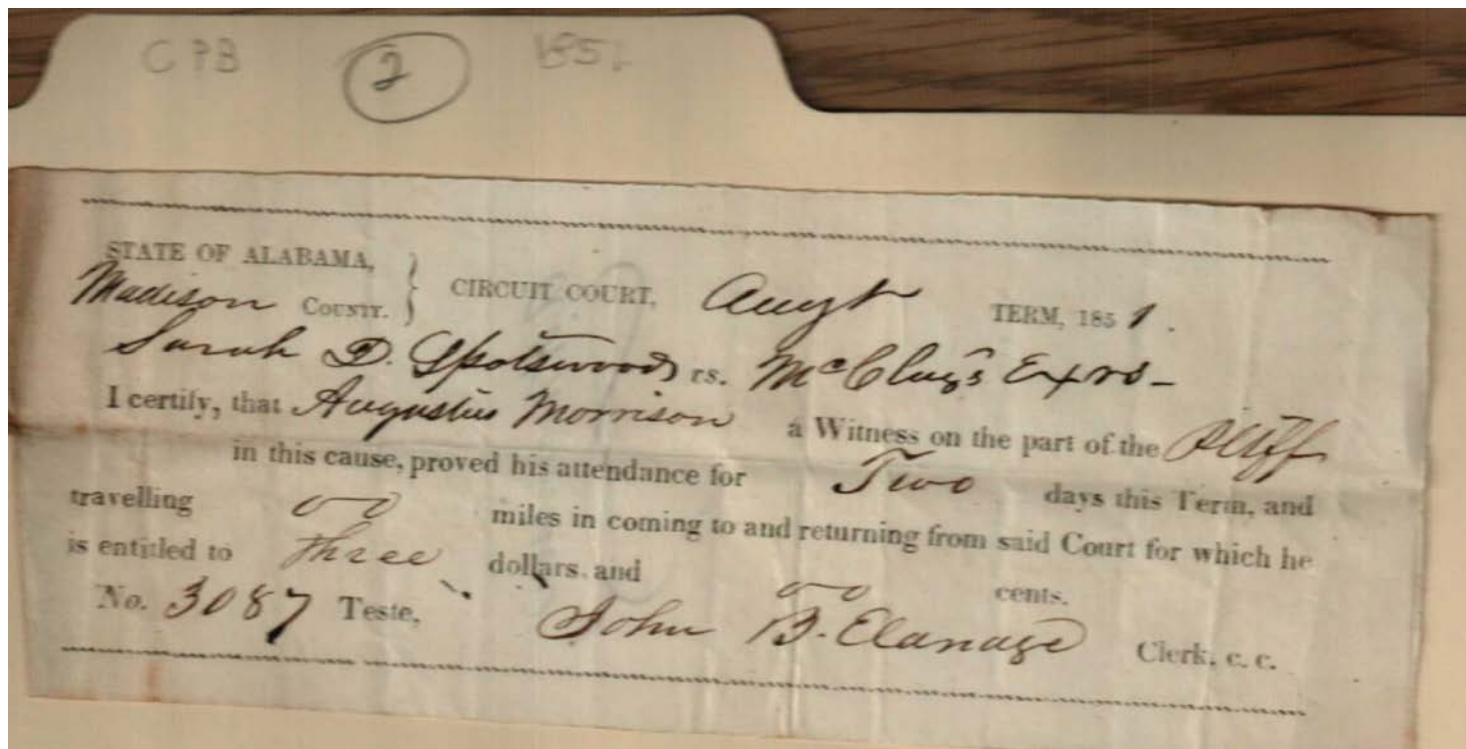 CPB 2 1851
STATE OF ALABAMA, } CIRCUIT COURT, Augt TERM, 1851.
Madison COUNTY.
Sarah D. Spotswood vs. McClug's Exrs-
I certify, that Augustus Morrison a Witness on the part of the Plff
in this cause, proved his attendance for Two days this Term, and
travelling 00 miles in coming to and returning from said Court for which he
is entitled to Three dollars, and 00 cents.
No. 3087 Teste, John B. Clerk, c. c.